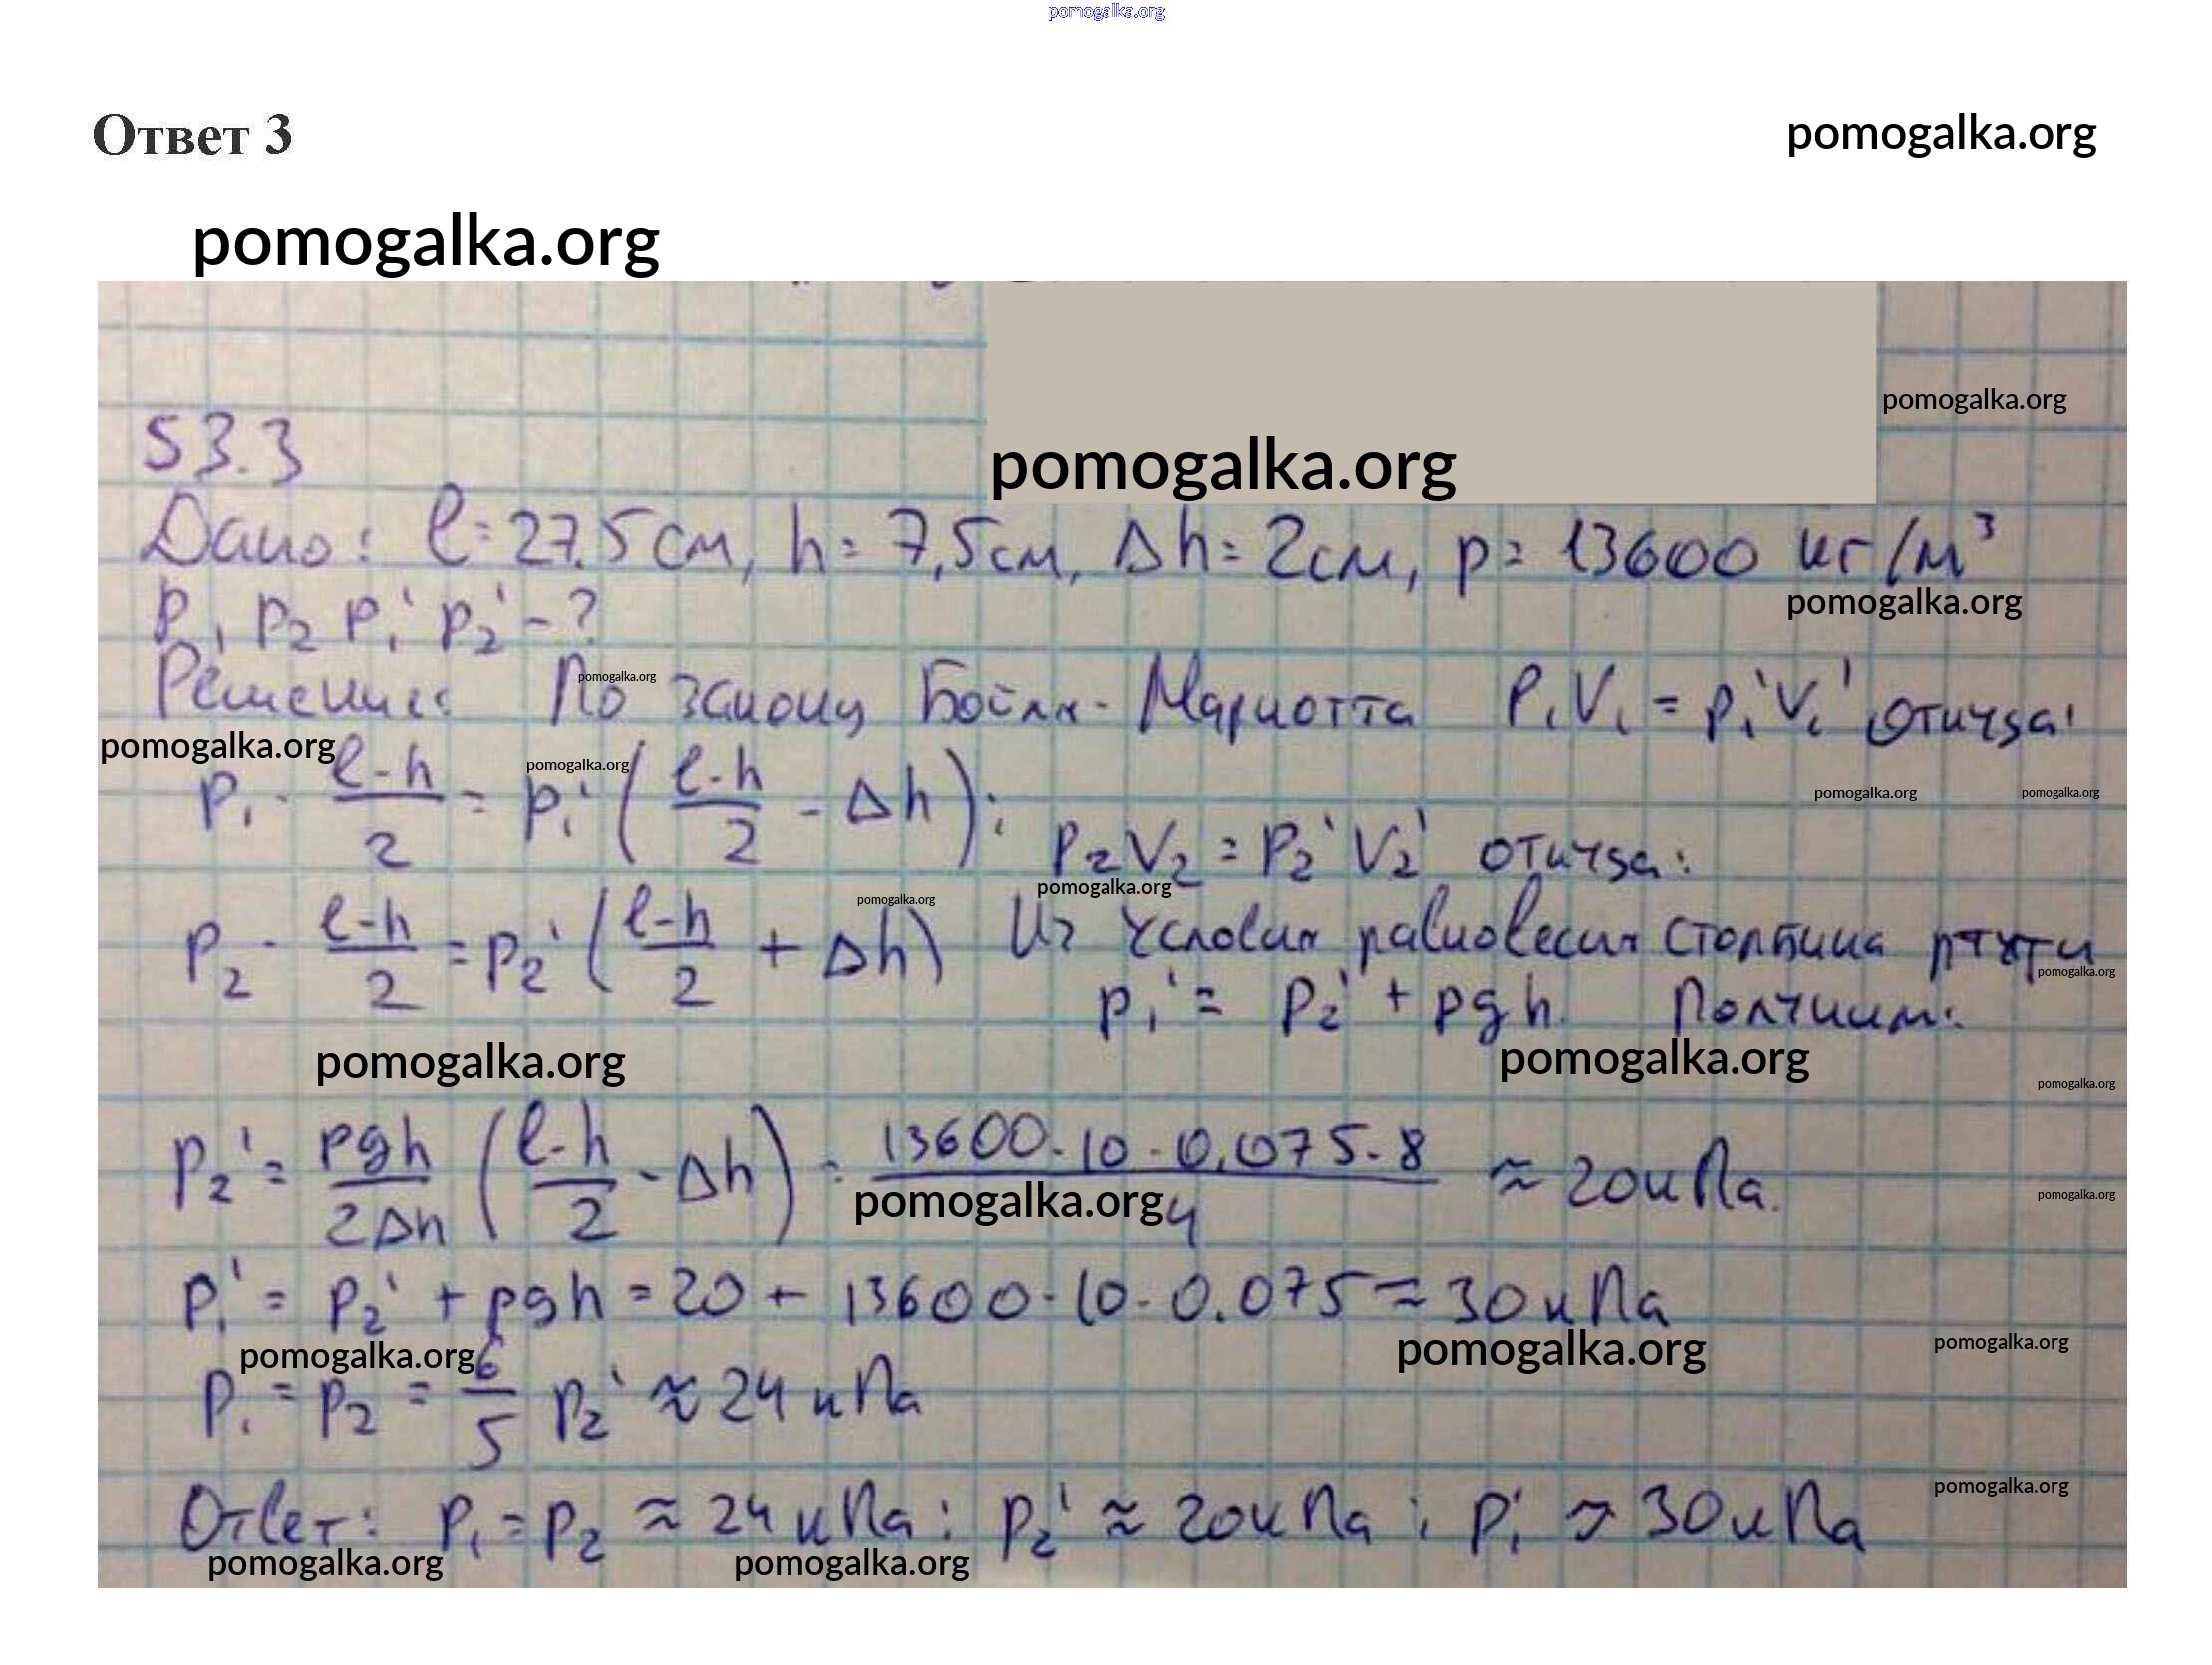 pomogalka.org
Ответ 3 pomogalka.org
pomogalka.org
pomogalka.org
53.3
pomogalka.org
Дано: l = 27.5 см, h = 7,5 см, Δh = 2 см, ρ = 13600 кг/м³
pomogalka.org
P₁ p₂ p₁' p₂' - ?
pomogalka.org
Решение: По закону Бойля-Мариотта P₁V₁ = p₁'V₁' откуда:
pomogalka.org pomogalka.org
p₁ · (l-h)/2 = p₁' ((l-h)/2 - Δh);
pomogalka.org pomogalka.org
p₂V₂ = p₂'V₂' откуда:
pomogalka.org pomogalka.org
p₂ · (l-h)/2 = p₂' ((l-h)/2 + Δh) Из условия равновесия столбика ртути
pomogalka.org
p₁' = p₂' + ρgh. Получим:
pomogalka.org pomogalka.org
pomogalka.org
p₂' = ρgh/2Δh ((l-h)/2 - Δh) = 13600·10·0,075·8/4 ≈ 20 кПа.
pomogalka.org pomogalka.org
p₁' = p₂' + ρgh = 20 + 13600·10·0.075 ≈ 30 кПа
pomogalka.org pomogalka.org pomogalka.org
p₁ = p₂ = 6/5 p₂' ≈ 24 кПа
pomogalka.org
Ответ: p₁ = p₂ ≈ 24 кПа; p₂' ≈ 20 кПа; p₁' ≈ 30 кПа
pomogalka.org pomogalka.org